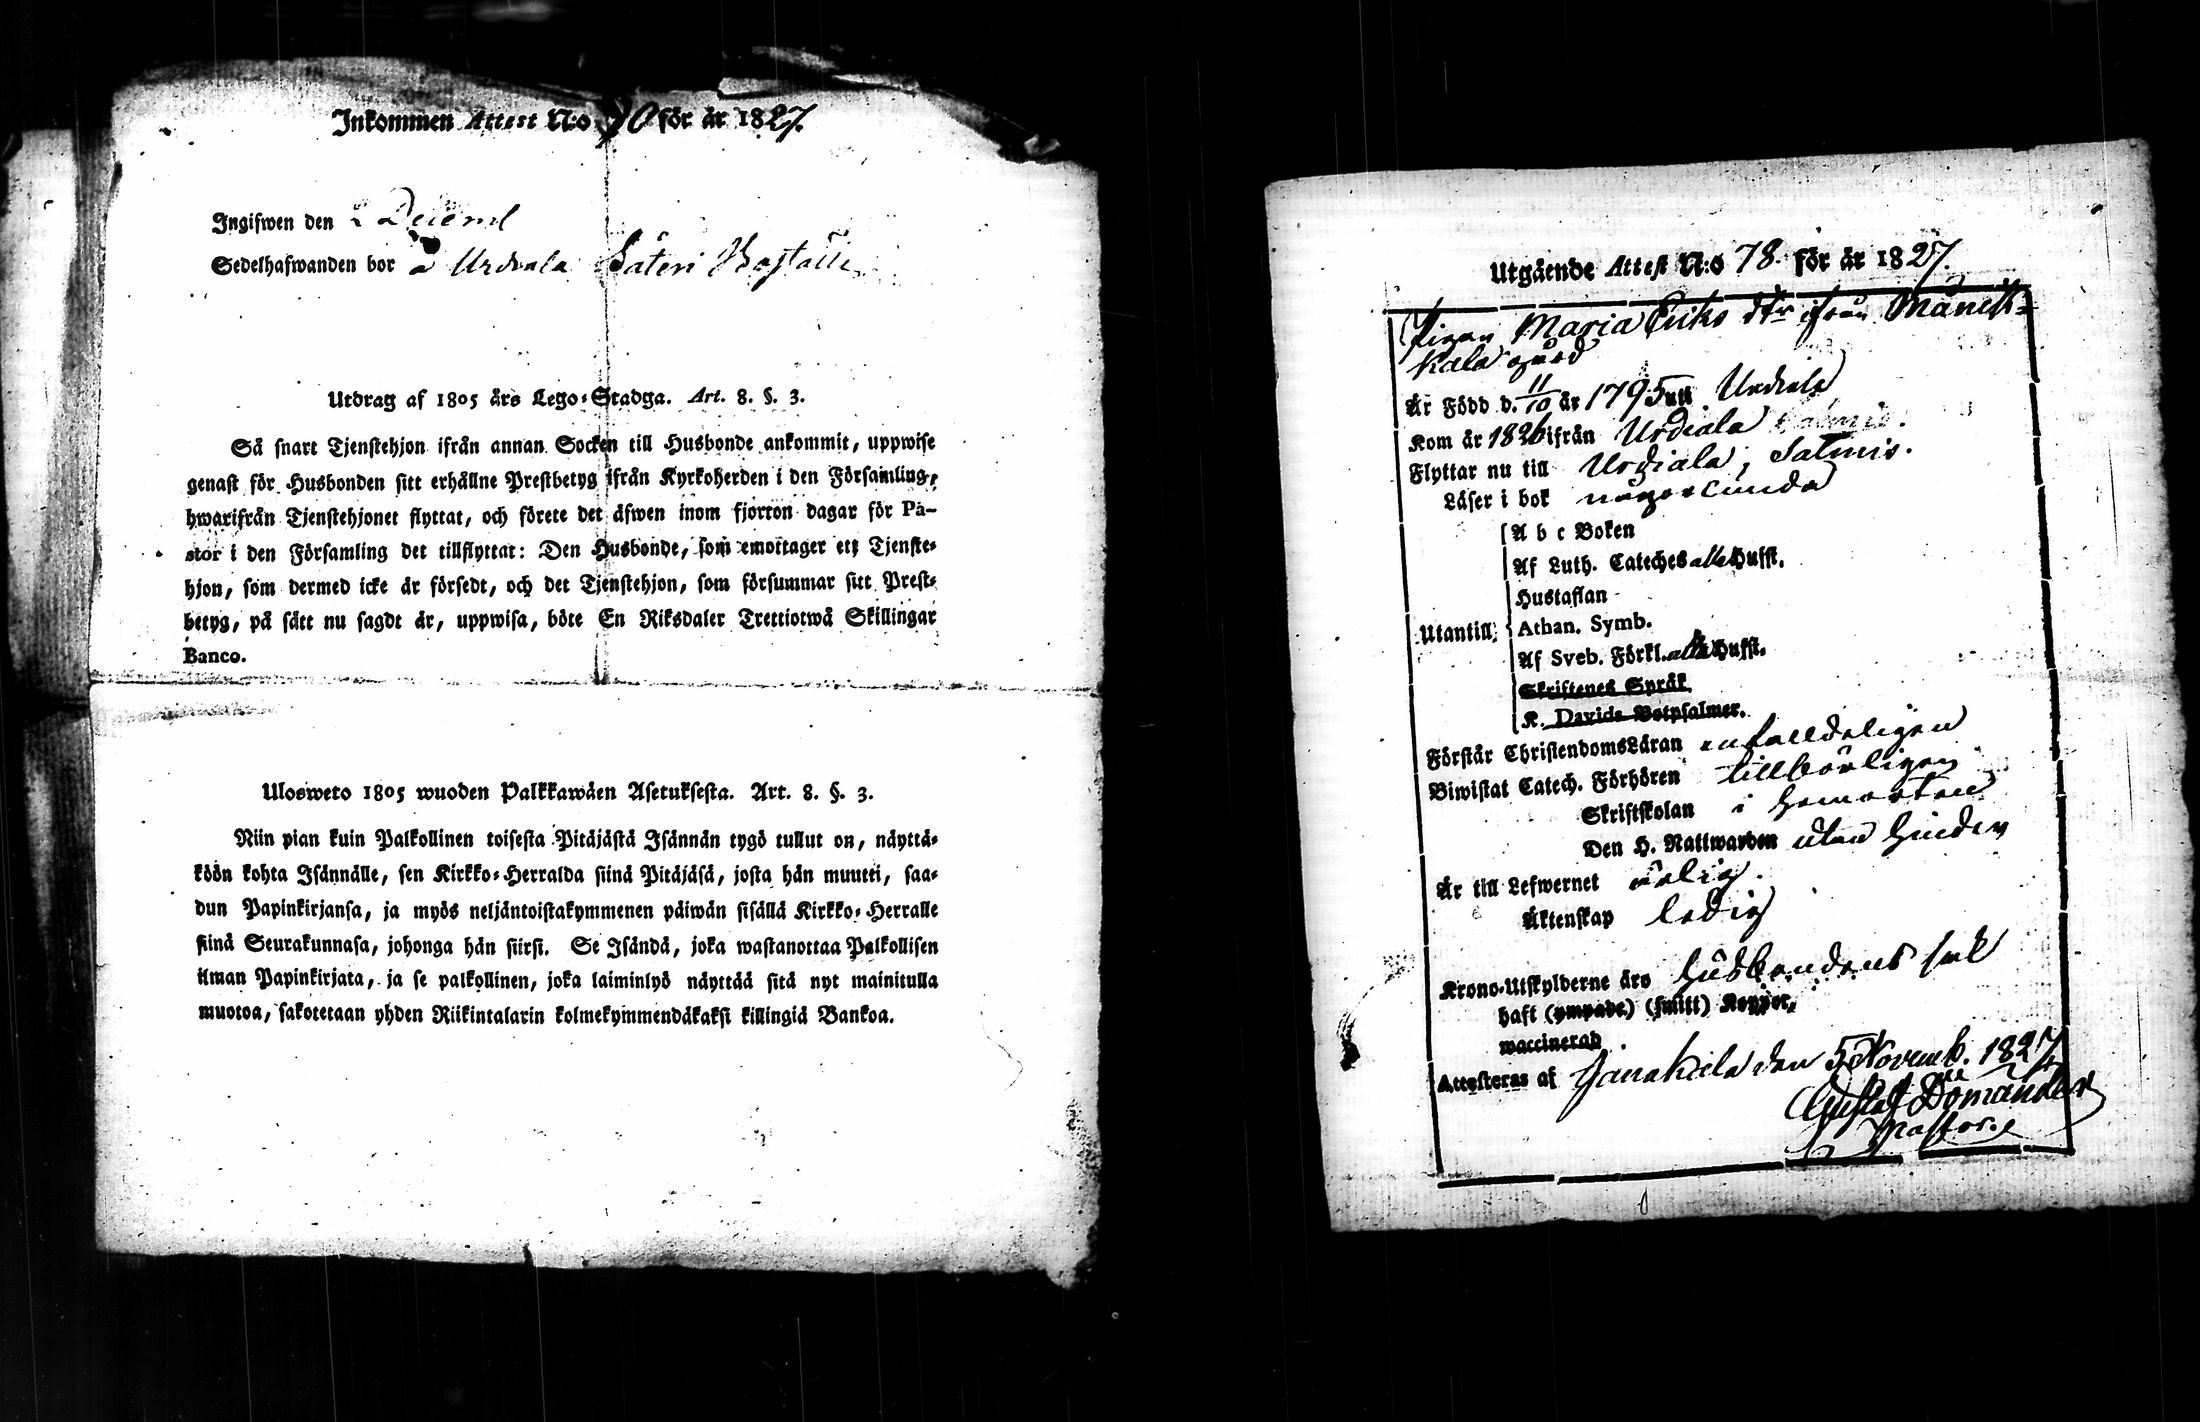 Inkommen Attest N:o 70 för år 1827.
Ingifwen den 2 Decemb
Sedelhafwanden bor å Urdiala Säteri Boställe
Utdrag af 1805 års Lego-Stadga. Art. 8. §. 3.
Så snart Tjenstehjon ifrån annan Socken till Husbonde ankommit, uppwise
genast för Husbonden sitt erhållne Prestbetyg ifrån Kyrkoherden i den Församling,
hwarifrån Tjenstehjonet flyttat, och förete det äfwen inom fjorton dagar för Pa-
stor i den Församling det tillflyttat: Den Husbonde, som emottager ett Tjenste-
hjon, som dermed icke är försedt, och det Tjenstehjon, som försummar sitt Prest-
betyg, på sätt nu sagdt är, uppwisa, böte En Riksdaler Trettiotwå Skillingar
Banco.
Ulosweto 1805 wuoden Palkkawäen Asetuksesta. Art. 8. §. 3.
Niin pian kuin Palkollinen toisesta Pitäjästä Isännän tygö tullut on, näyttä-
köön kohta Isännälle, sen Kirkko-Herralda siinä Pitäjäsä, josta hän muutti, saa-
dun Papinkirjansa, ja myös neljäntoistakymmenen päiwän sisällä Kirkko-Herralle
siinä Seurakunnasa, johonga hän siirsi. Se Isändä, joka wastanottaa Palkollisen
ilman Papinkirjata, ja se palkollinen, joka laiminlyö näyttää sitä nyt mainitulla
muotoa, sakotetaan yhden Riikintalarin kolmekymmendäkaksi killingiä Bankoa.
Utgående Attest N:o 78. för år 1827.
Pigan Maria Eriks dtr ifrån Månik-
kala gård
Är Född d. 11/10 år 1795 uti Urdiala
Kom år 1826 ifrån Urdiala
Flyttar nu till Urdiala, Salmis.
Läser i bok någorlunda
A b c Boken
Af Luth. Cateches alla Hufst.
Hustaflan
Utantill: Athan. Symb.
Af Sveb. Förkl. alla Hufst.
Skriftenes Språk
K. Davids Botpsalmer.
Förstår ChristendomsLäran enfalldeligen
Biwistat Catech. Förhören tillbörligen
Skriftskolan i hemorten
Den H. Nattwarden utan hinder
Är till Lefwernet ärlig.
Äktenskap ledig
Krono-Utskylderne äro husbondens sak
haft (ympade) (smitt) Koppor.
waccinerad .
Attesteras af Janakkala den 5 Novemb. 1827
Gustaf Dömander
Pastor.